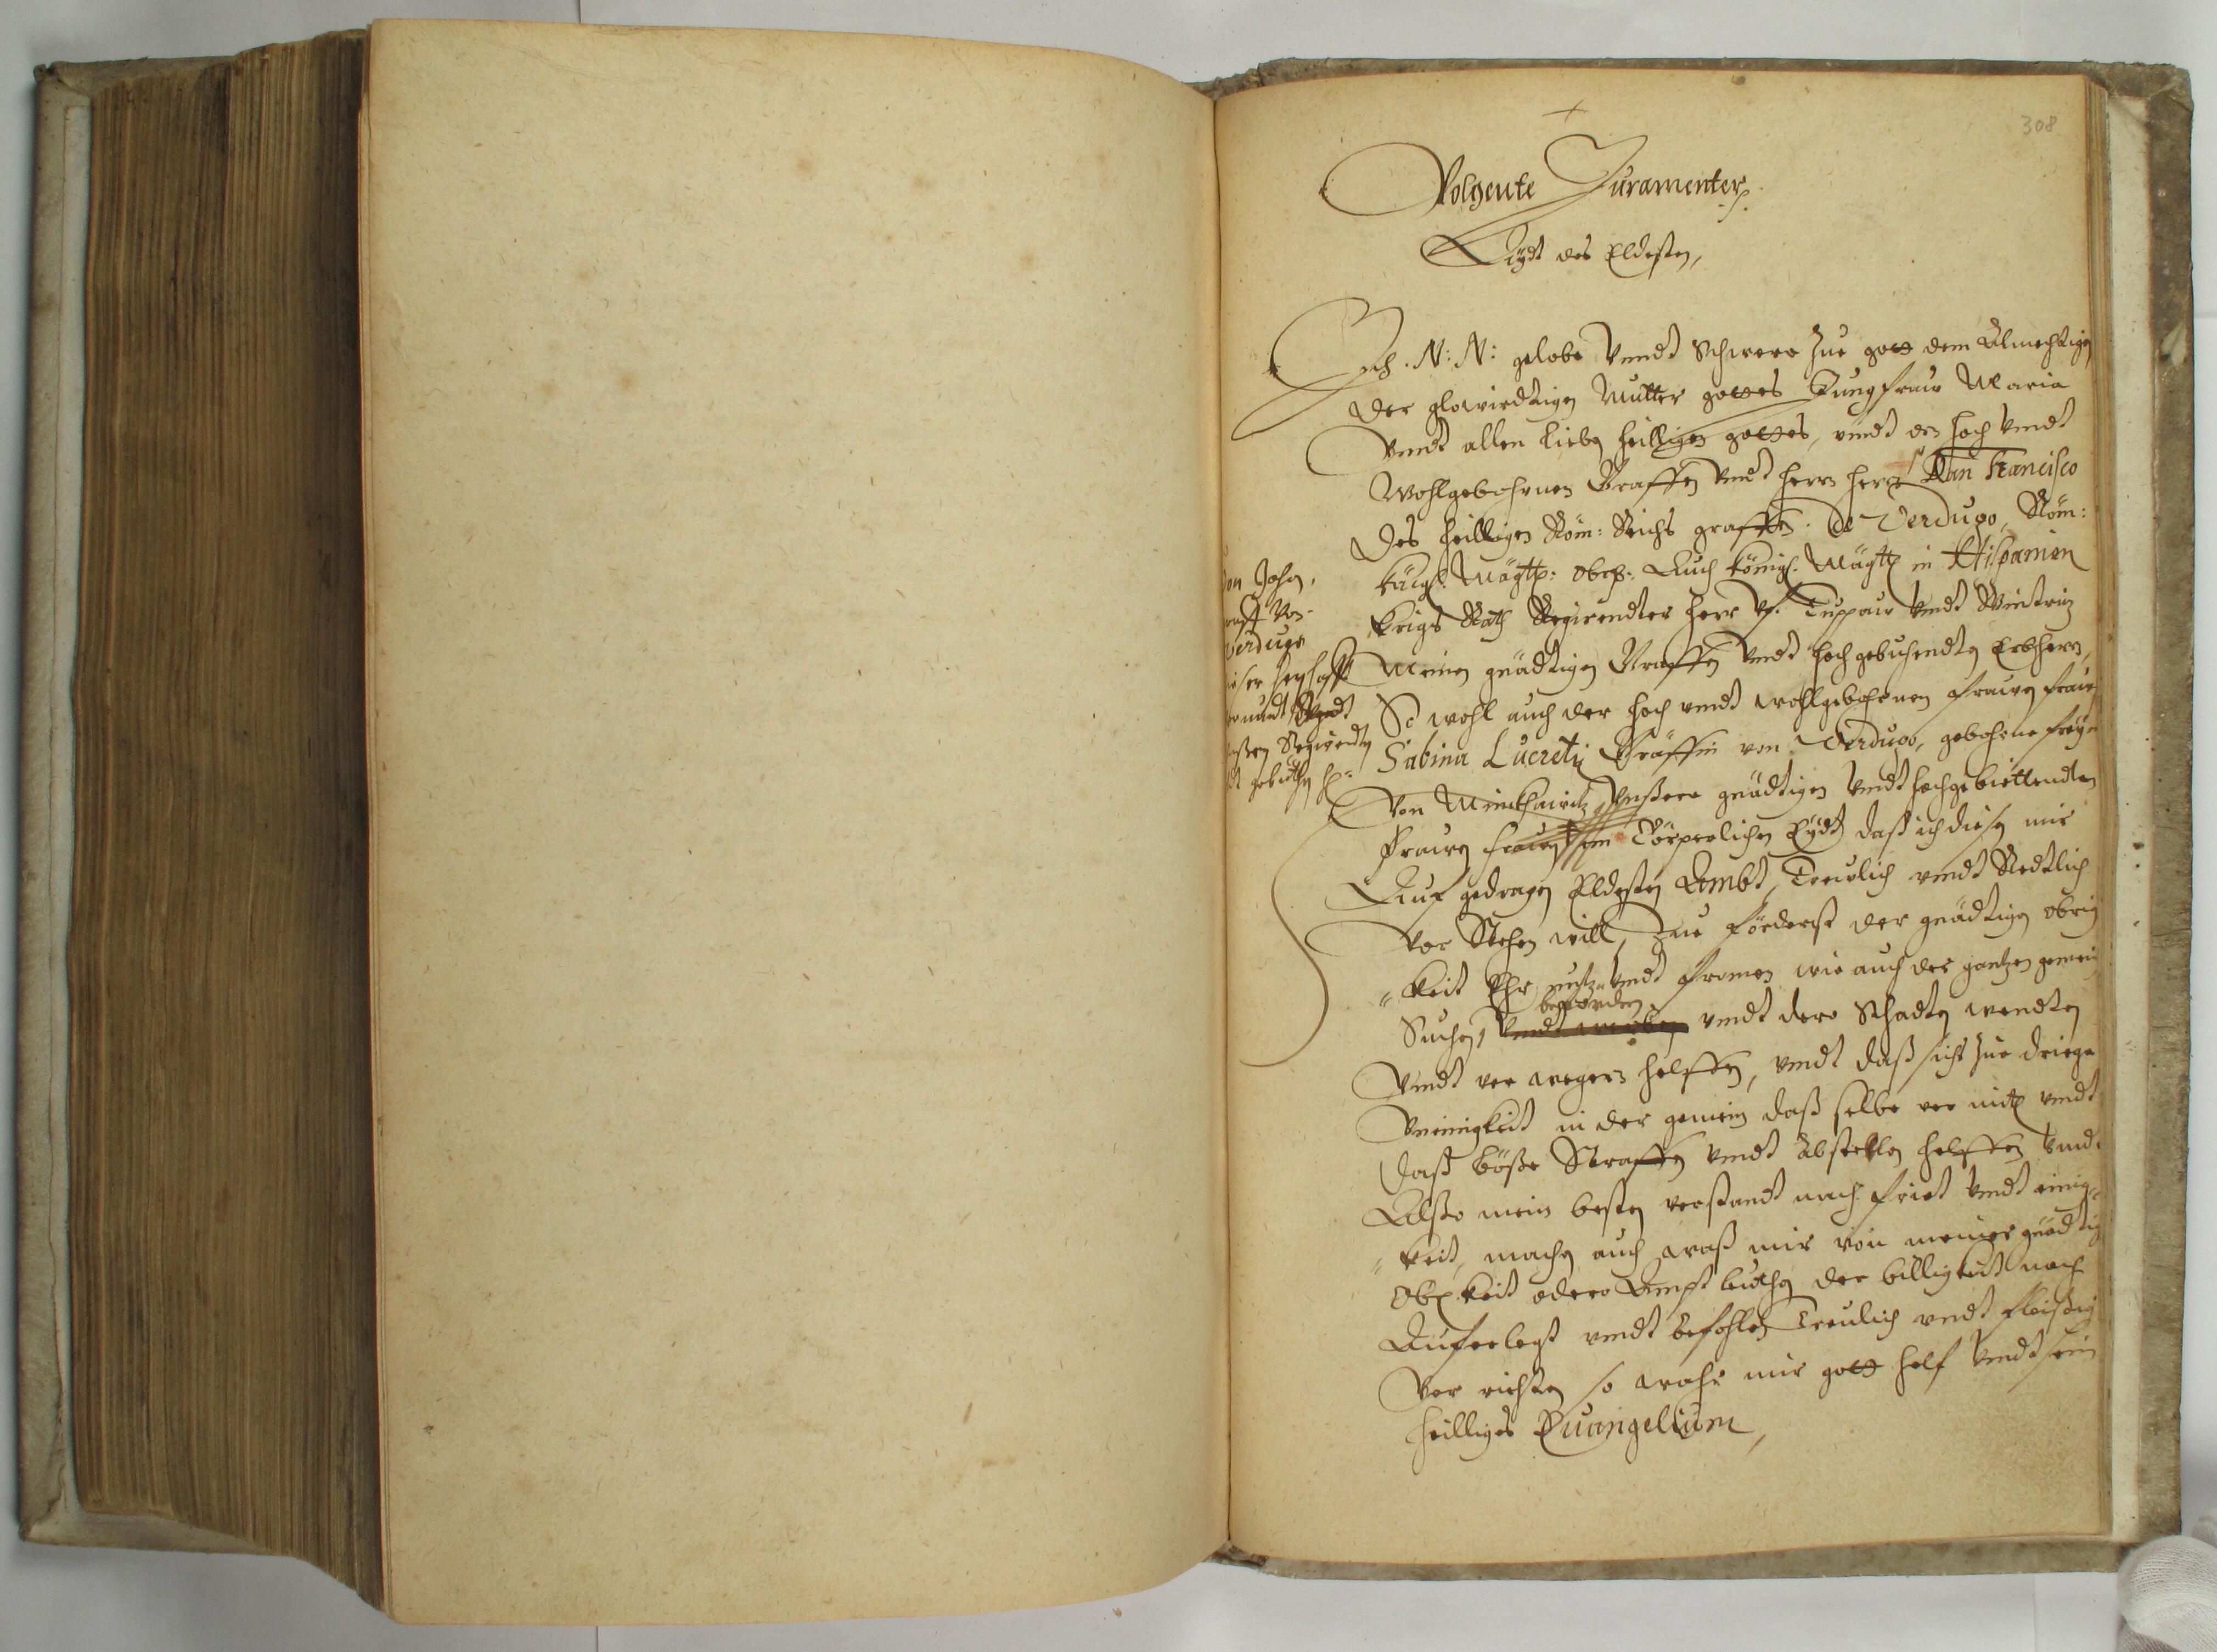 308
Volgente Juramenter
Eÿdt des Eldesten,
Ich. N: N: gelobe Vndt Schwere Zue gott dem Almechtigen
Der glorwirdtigen Mutter gottes Jungfraw Maria
Vndt allen Lieben heilligen gottes, vndt den hoch Vndt
Wohlgebohrnen Graffen Vndt herrn herrn Don Francisco
Des heilligen Röm: Reichs graffen. de Verdugo, Röm:
Kaÿ: Maÿtt: Obr: Auch Königl: Maÿtt in Hispanien
Kriegs Rath Regirendter herr vf Tuppau Vndt Wintriz
Meinen gnädtigen Graffen Vndt hoch gebuhendten Erbherrn,
So wohl auch der hoch vndt wohlgebohrnen frawen fraw
Sabina Lucretÿ Gräffin von Verdugo, gebohrne freÿin
Von Minckhwitz Vnßere gnädtigen Vndt hochgebiettendten
frawen frawen ein Cörperlichen Eÿdt daß ich diesen mir
Auf gedragen Eldesten Ambt, Treulich vndt Redtlich
Vor Stehen will, Zue förderst der gnädtigen obrig
"keit Ehr nutz Vndt fromen wie auch der gantzen gemein
beförden
Suchen, Vndt werben vndt dero Schadten wendten
Vndt ver wegern helffen, vndt daß sich zue driege
Vneinigkeit in der gemein daß selbe ver mitt vndt
Daß böße Straffen vndt Abstellen helffen Vndt
Alßo mein besten verstandt nach friet Vndt einig-
"keit, machen auch waß mir von meiner gnedtig
Obrkeit odero Amptleuthen der billigkeit nach
Auferlegt vndt befohlen Treulich vndt fleißig
Ver richten so wahr mir gott helf Vndt sein
heilliges Evangelium,
on John,
raff Von
Verdugo
ieser herschafft
Regirendten
gebieth